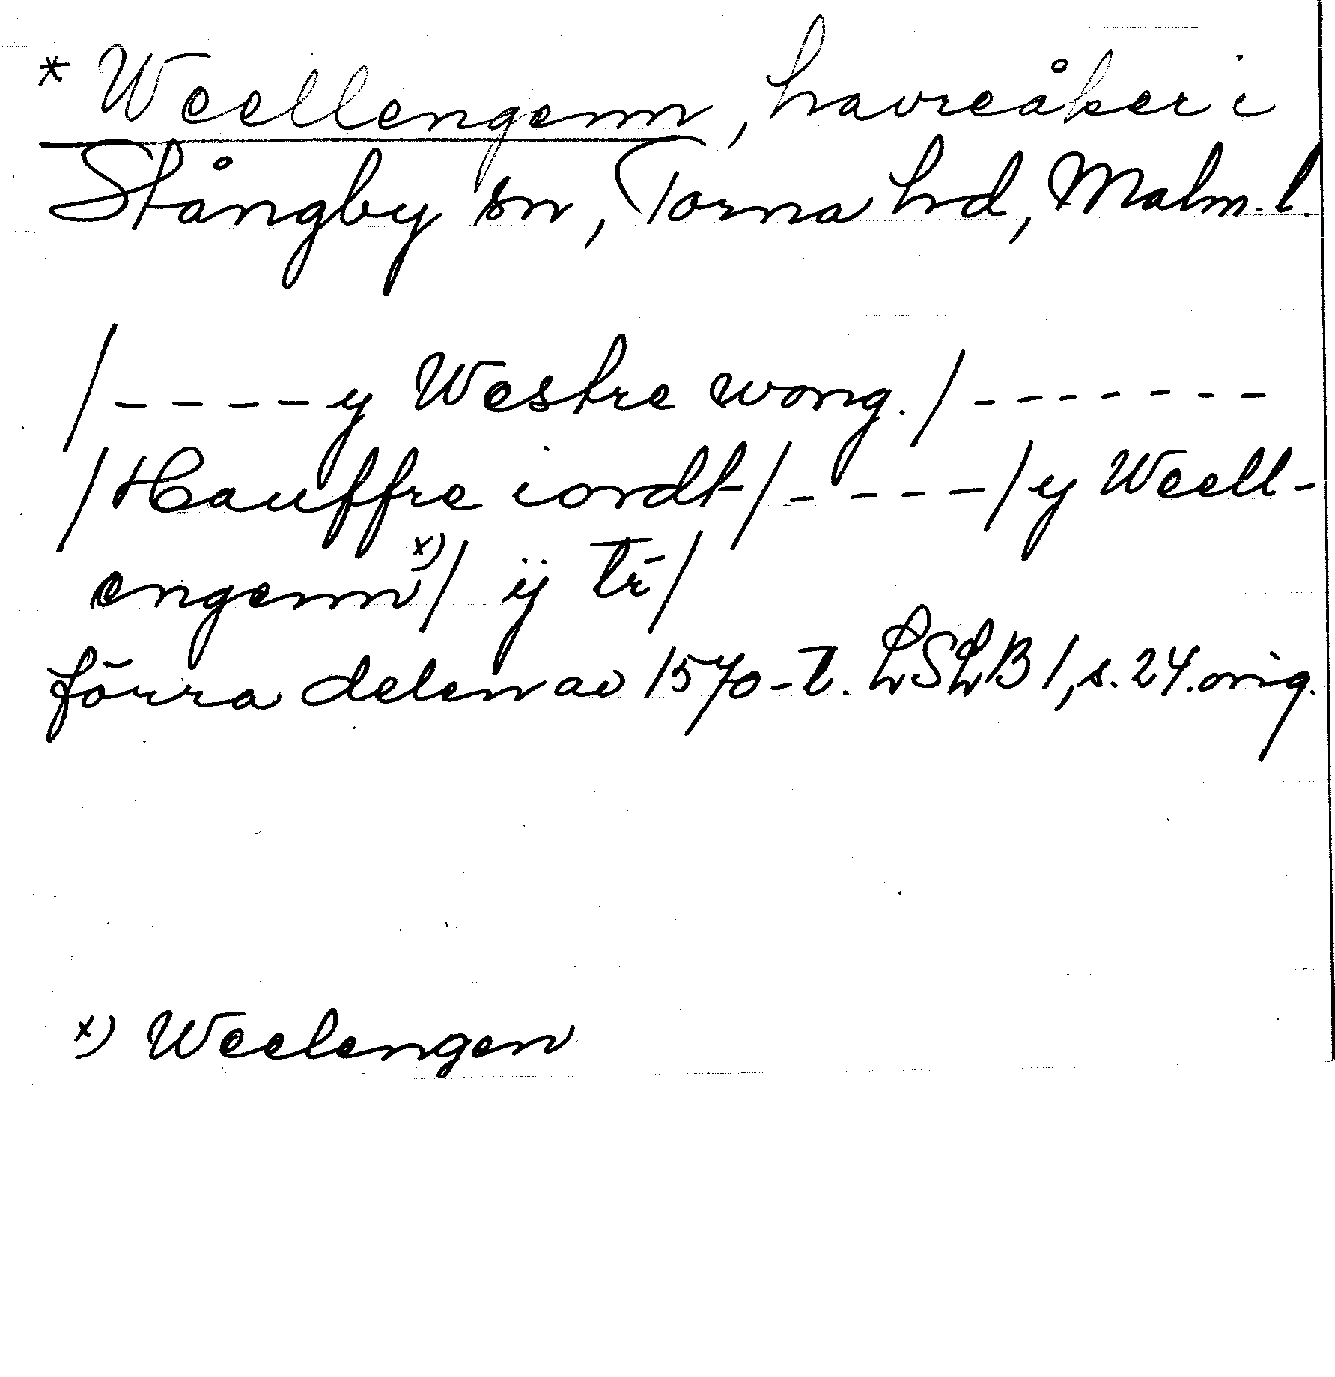 * Weellengenn, havreåker i
Stångby sn, Torna hd, Malm. l.
/----y Westre wong./-------
/Hauffre iordt/----/y Weell-
engenn x)/ ÿ tr̄/
förra delen av 1570-t. LSLB 1, s. 24. orig.
x) Weelengen